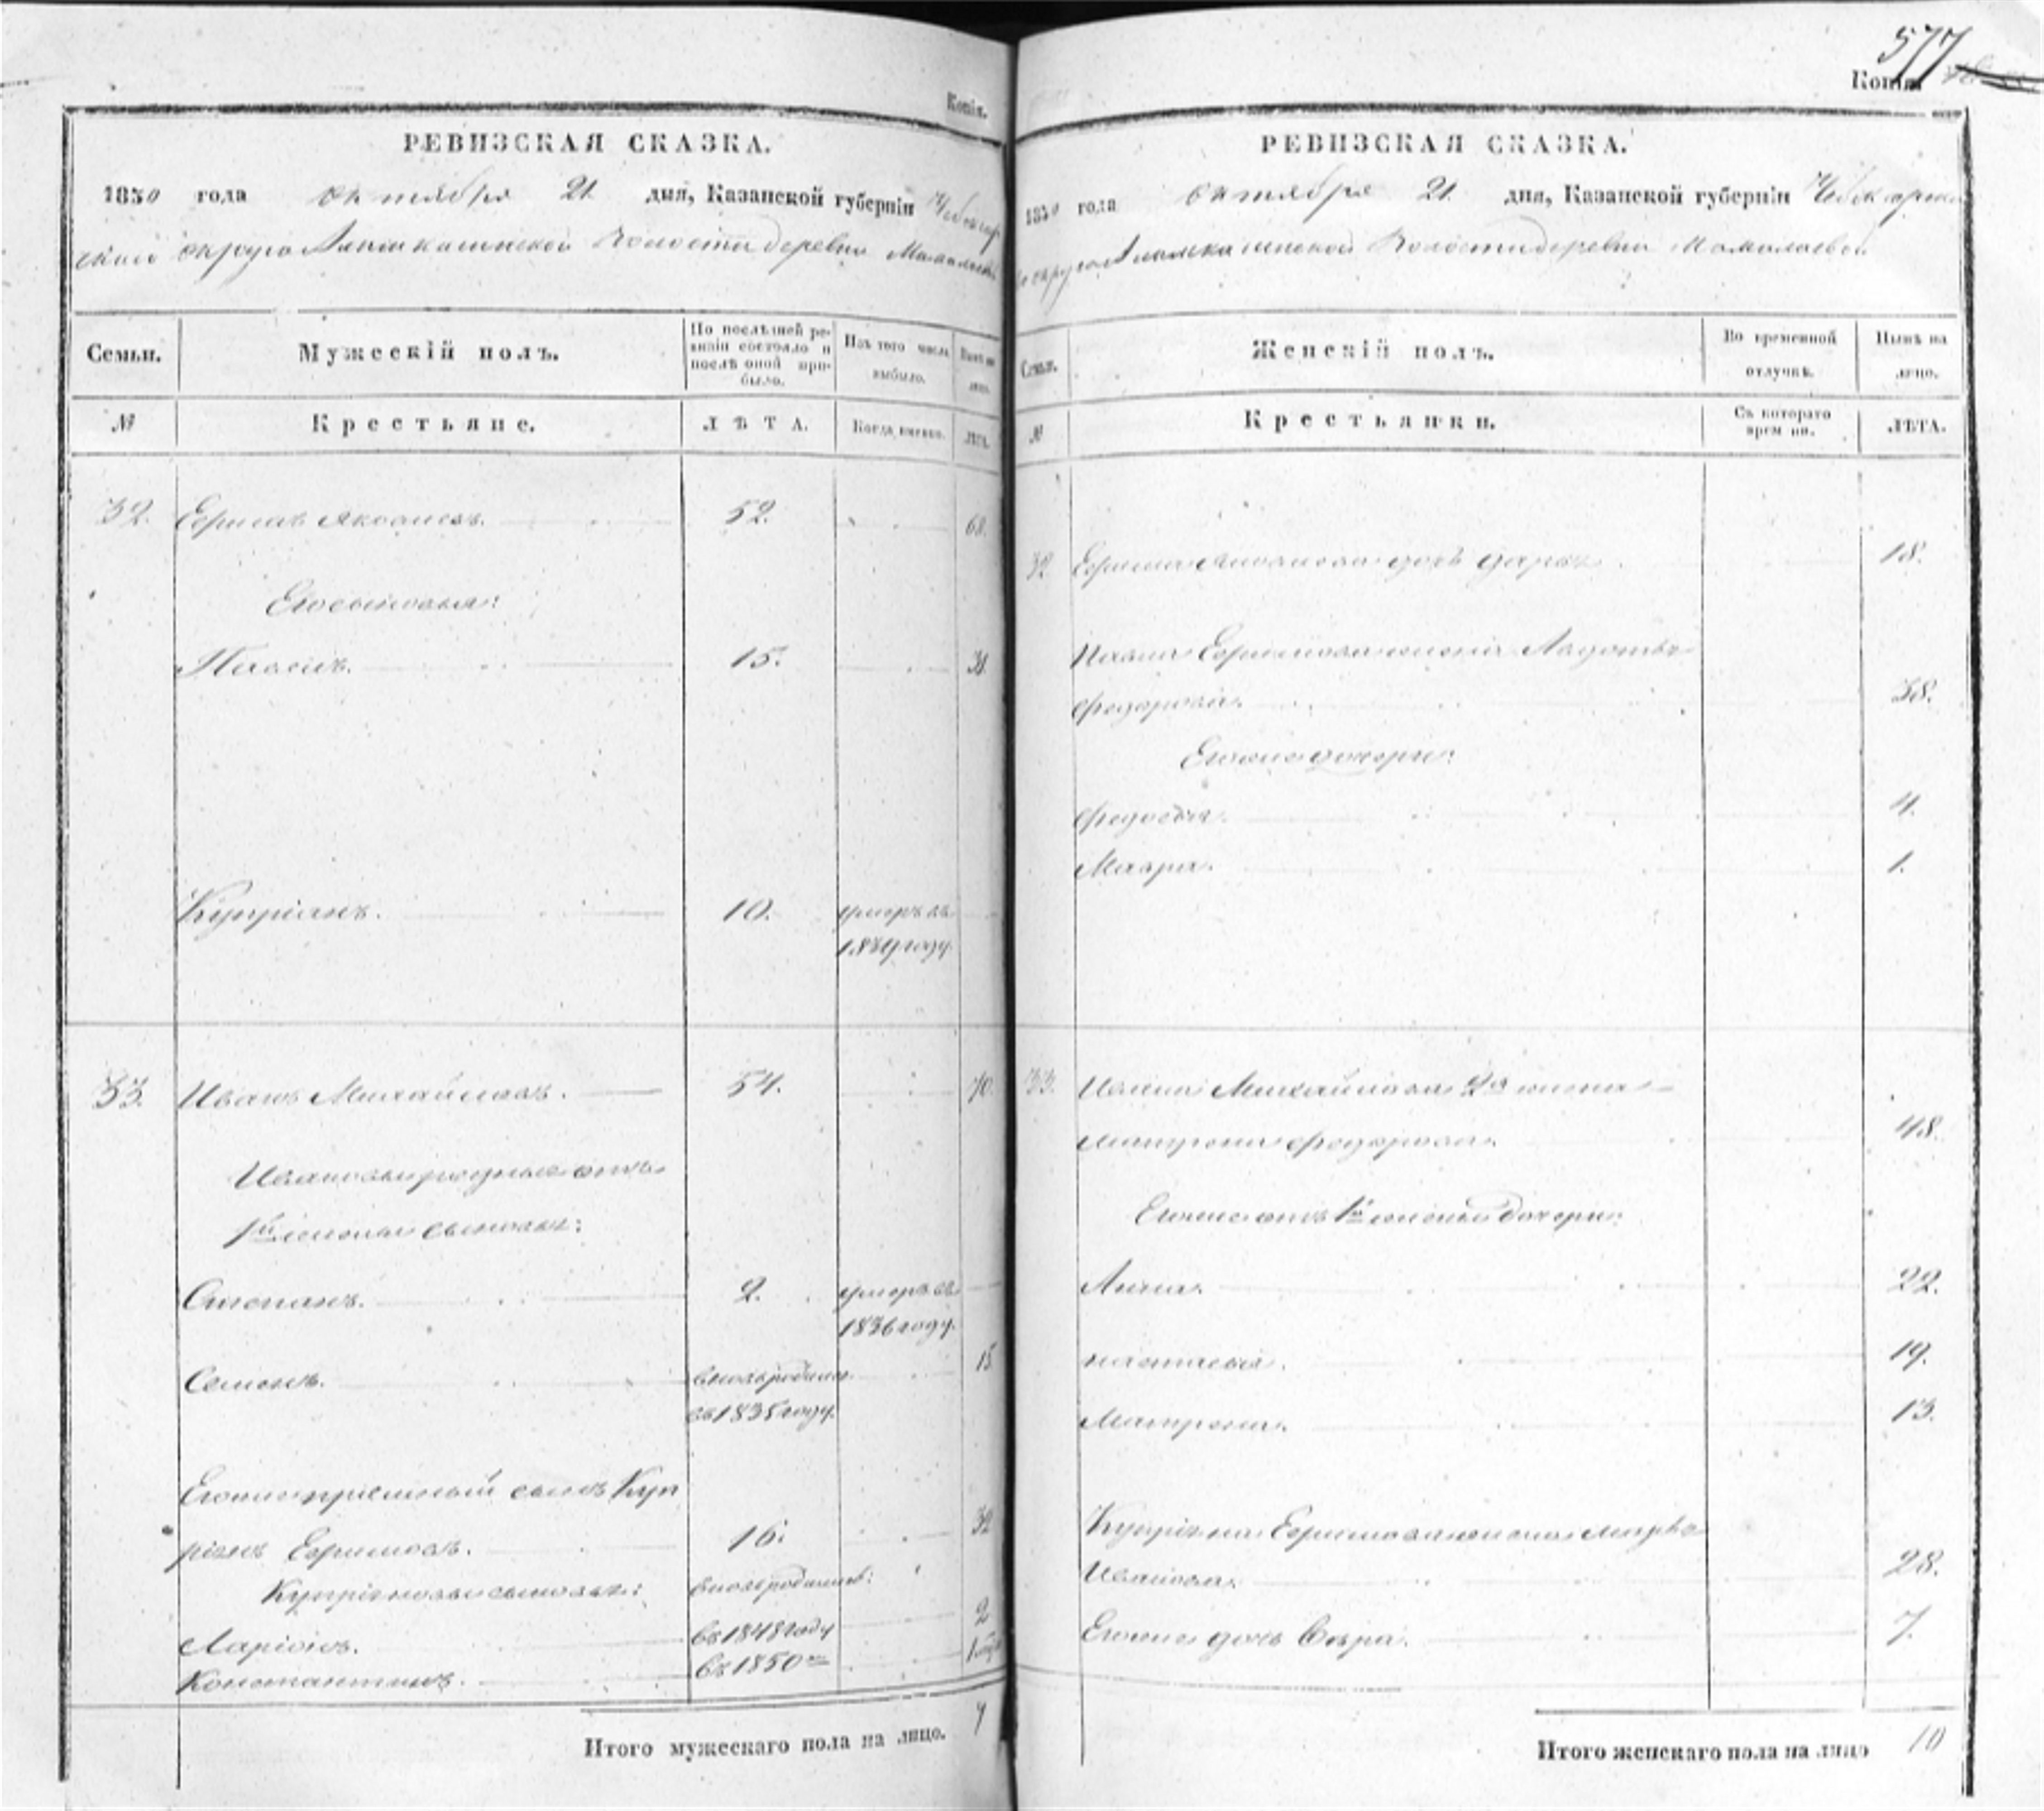 Копія.
РЕВИЗСКАЯ СКАЗКА.
1850 года октября 21 дня, Казанской губерніи Чебоксар
скаго округа волости деревни
Семьи. Мужескій полъ. По послѣдней ре-
визіи состояло и
послѣ оной при-
было. Изъ того числа
выбыло. Нынѣ на
лицо.
№ Крестьяне. ЛѢТА. Когда именно. ЛѢТА.
32. Ефимъ Яковлевъ. 52. 68.
Его сыновья:
Павелъ. 15. 31.
Купріянъ. 10. умеръ въ
году.
33. Иванъ Михайловъ. 54. 70.
Ивановы родные отъ
1й жены сыновья:
Степанъ. 2. умеръ въ
1836 году.
Семенъ. вновь родился 15
въ 1835 году.
Его же пріемный сынъ Куп
ріянъ Ефимовъ. 16. 32
Купріяновы сыновья: вновь родились:
Ларіонъ. въ 1848 году 2
Константинъ. въ 1850м
Итого мужескаго пола на лицо. 7
577
Копія.
РЕВИЗСКАЯ СКАЗКА.
1850 года октября 21. дня, Казанской губерніи Чебоксарска
го округа волости деревни
Семьи. Женскій полъ. Во временной
отлучкѣ. Нынѣ на
лицо.
№ Крестьянки. Съ котораго
времени. ЛѢТА.
32 Ефима Яковлева дочь Дарья. 18.
Павла Ефимова жена Авдотья
Федорова. 38.
Его же дочери:
Федосья. 4.
Мавра. 1.
33. Ивана Михайлова 2я жена
Матрена Федорова. 48.
Его же отъ 1й жены дочери:
Анна. 22.
Настасья. 19.
Матрена. 13.
Купріяна Ефимова жена Марфа
Иванова. 28.
Его же дочь Вѣра. 7.
Итого женскаго пола на лицо 10